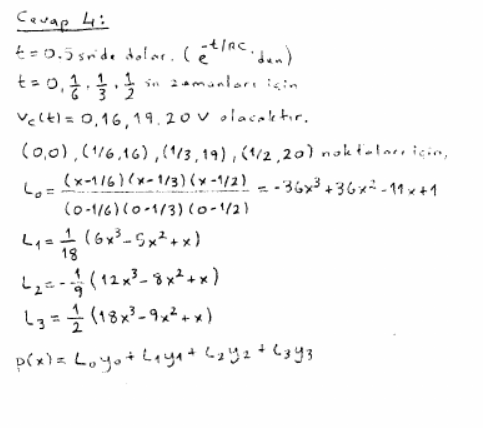 Cevap 4:
t=0.5 sn'de dolar. (e^-t/RC 'den)
t=0, 1/6, 1/3, 1/2 sn zamanları için
Vc(t)=0,16,19,20 V olacaktır.
(0,0), (1/6,16), (1/3,19), (1/2,20) noktaları için,
L₀= (x-1/6)(x-1/3)(x-1/2) / (0-1/6)(0-1/3)(0-1/2) = -36x³+36x²-11x+1
L₁= 1/18 (6x³-5x²+x)
L₂=- 1/9 (12x³-8x²+x)
L₃= 1/2 (18x³-9x²+x)
p(x)= L₀y₀+L₁y₁+L₂y₂+L₃y₃